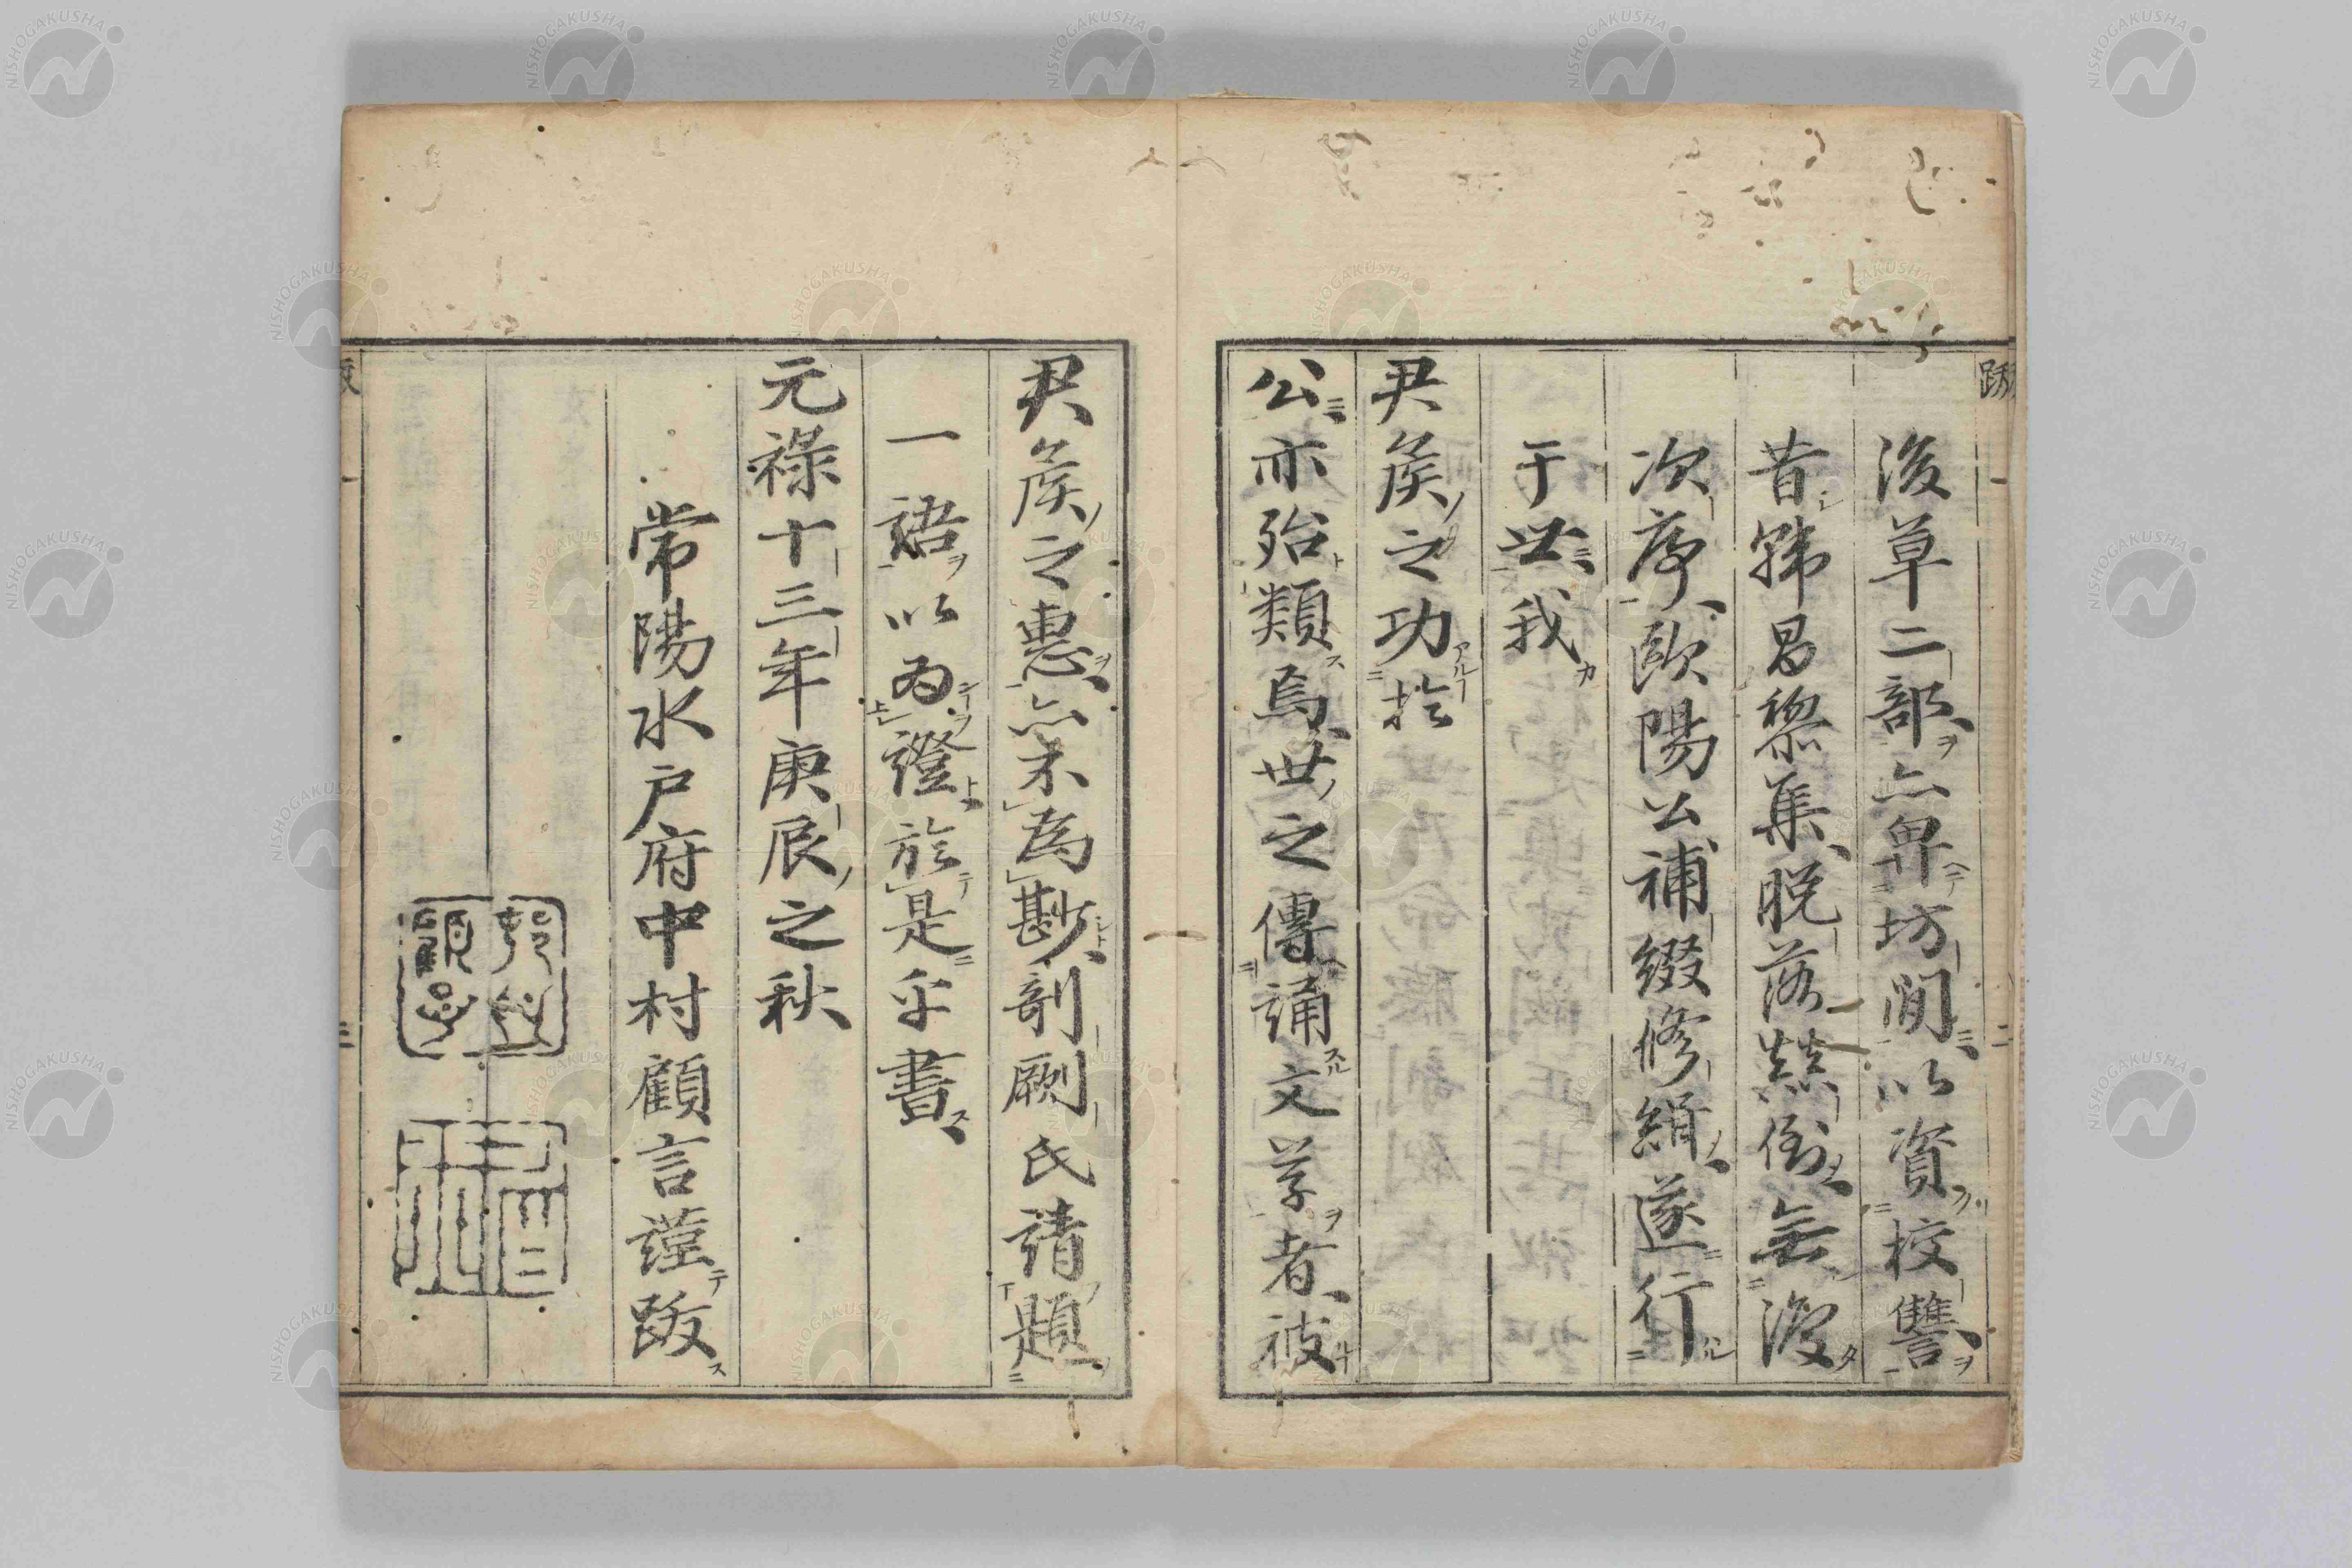 跋 二
後草二部亦畀坊間以資校讐
昔韓昌黎集脱落顛倒無復
次序歐陽公補綴修緝遂行
于世我
君侯之功於
公亦殆類焉世之傳誦文草者被
君侯之惠亦未為尠剞劂氏請題
一語以為證於是乎書
元祿十三年庚辰之秋
常陽水戶府中村顧言謹跋
NISHOGAKUSHA